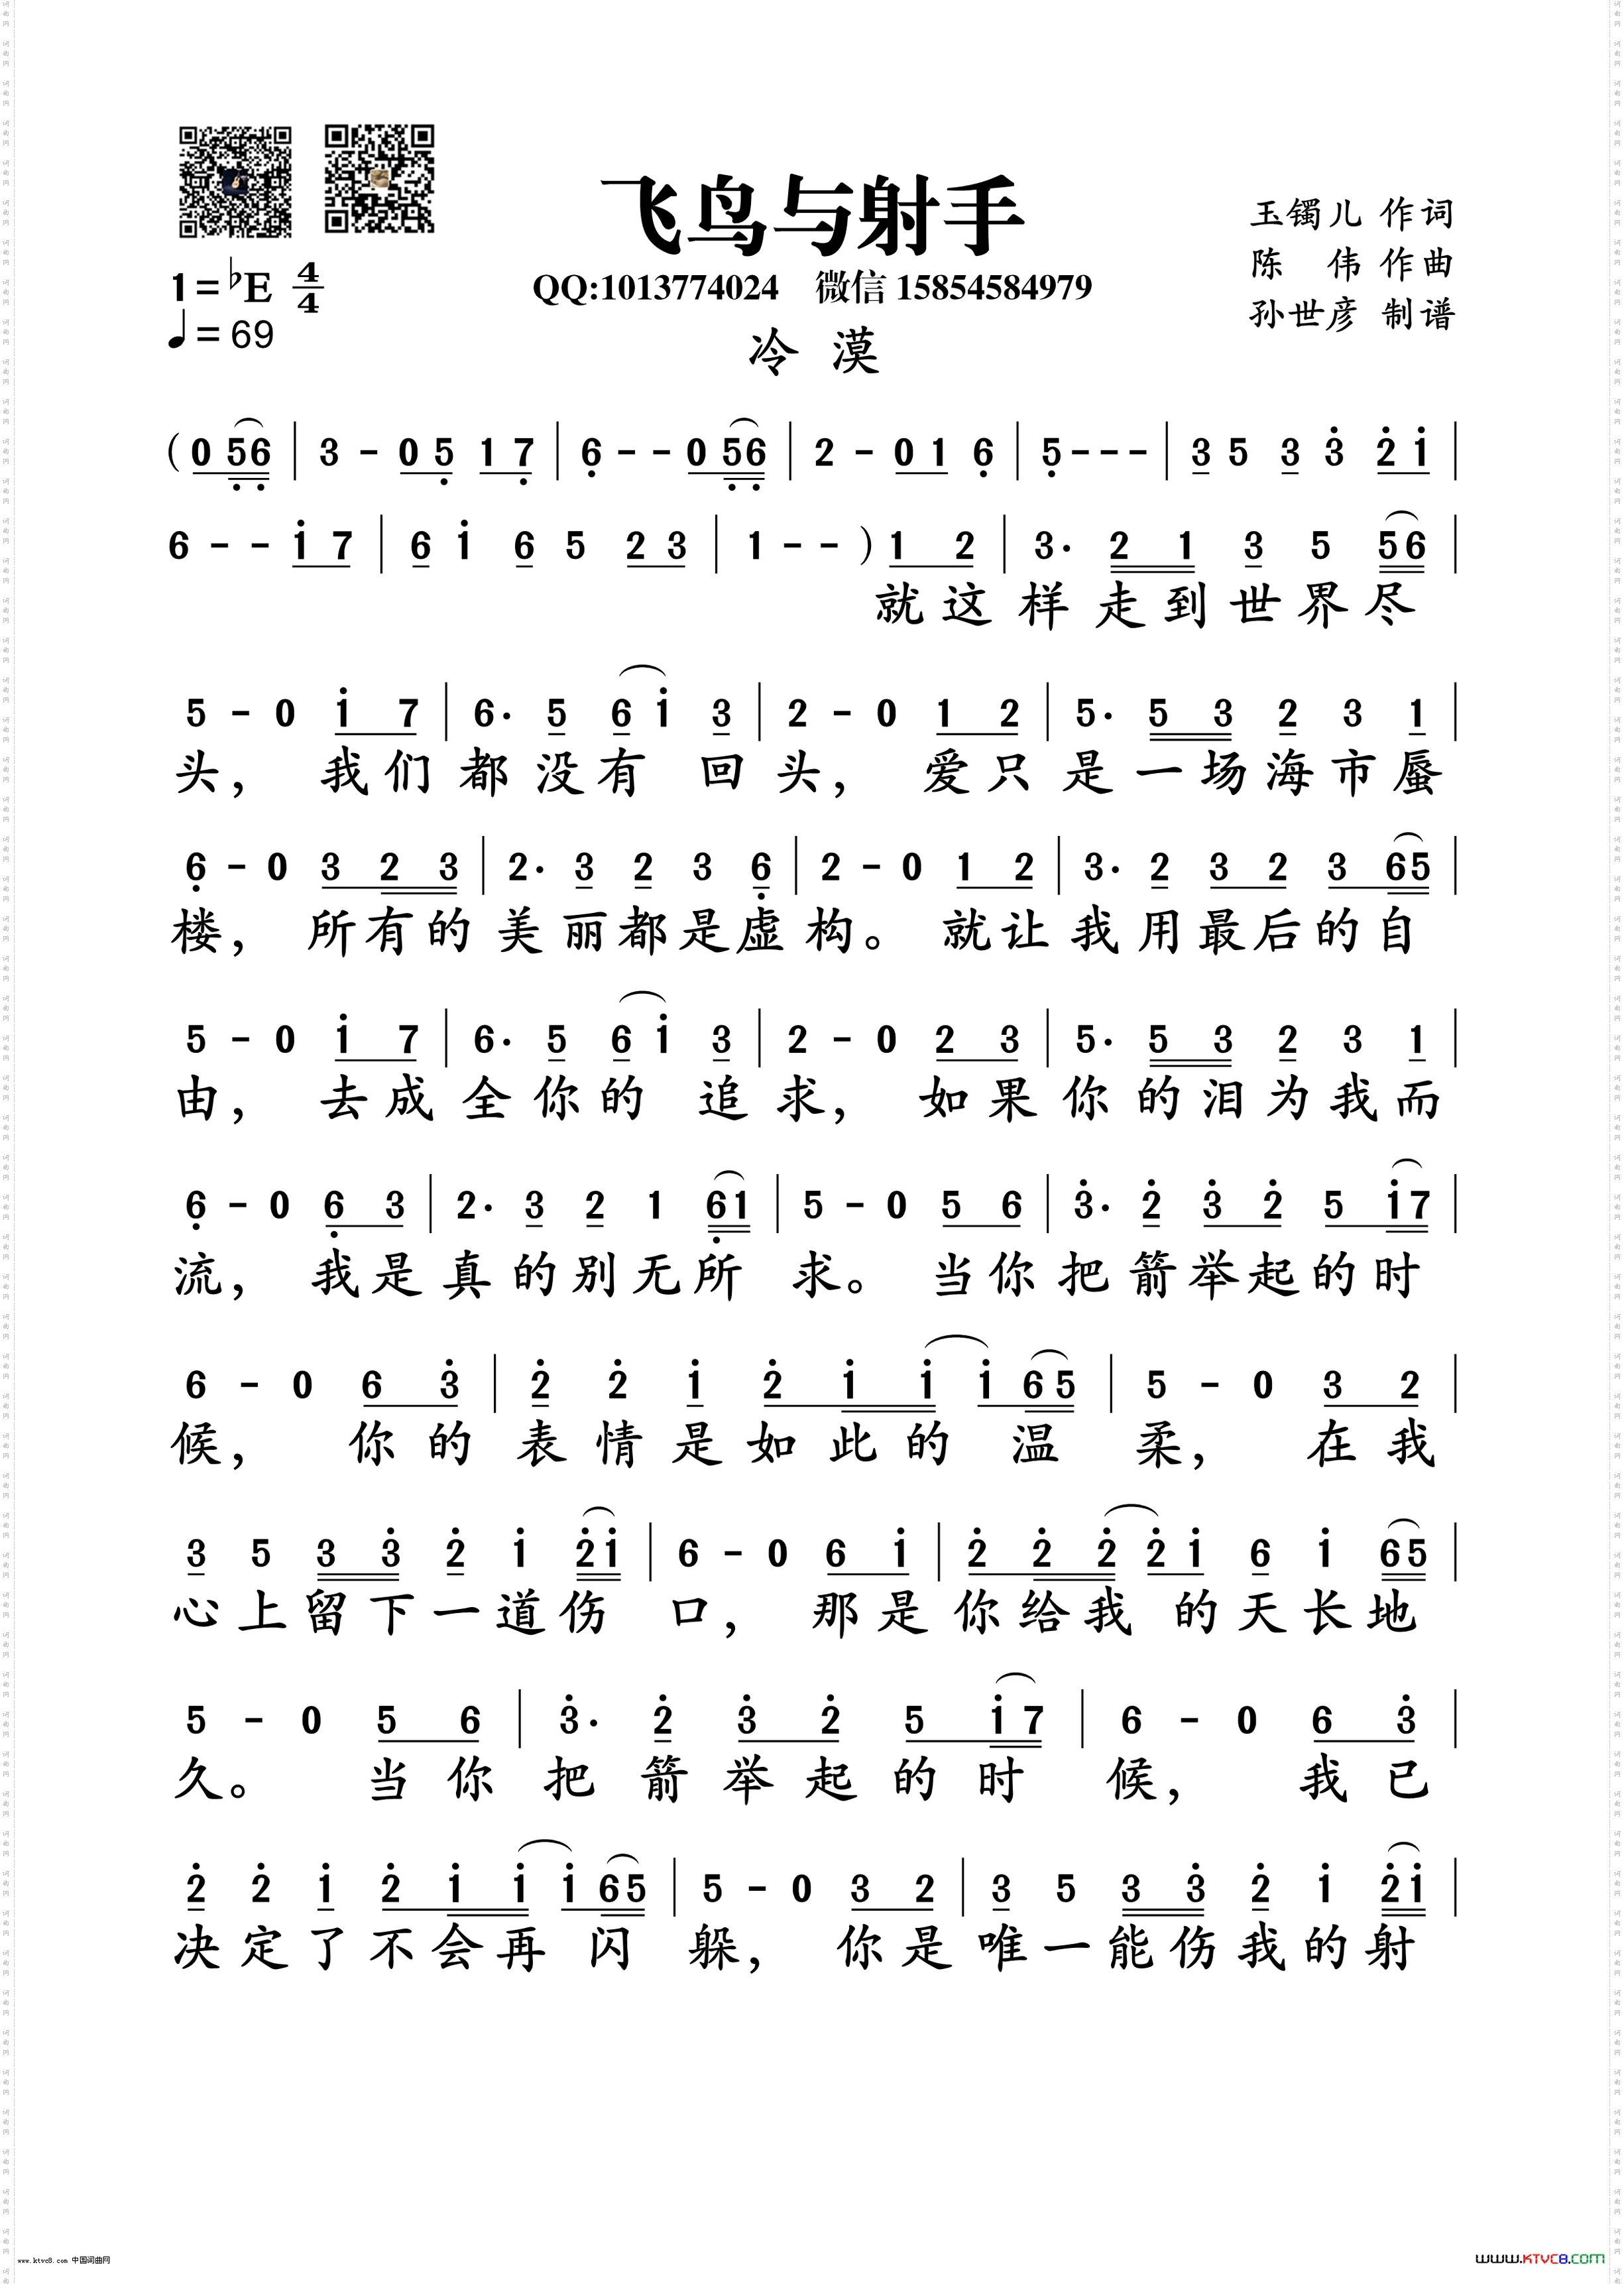 飞鸟与射手
QQ:1013774024 微信 15854584979
冷 漠
玉镯儿 作词
陈 伟 作曲
孙世彦 制谱
1=♭E 4/4
♩=69
(0 5̣6̣ | 3 - 0 5̣ 1 7̣ | 6̣ - - 0 5̣6̣ | 2 - 0 1 6̣ | 5̣ - - - | 3 5 3 3̇ 2̇ 1̇ |
6 - - 1̇ 7 | 6 1̇ 6 5 2 3 | 1 - - ) 1 2 | 3· 2 1 3 5 56 |
就 这 样 走 到 世 界 尽
5 - 0 1̇ 7 | 6· 5 6 1̇ 3 | 2 - 0 1 2 | 5· 5 3 2 3 1 |
头， 我 们 都 没 有 回 头， 爱 只 是 一 场 海 市 蜃
6̣ - 0 3 2 3 | 2· 3 2 3 6̣ | 2 - 0 1 2 | 3· 2 3 2 3 65 |
楼， 所 有 的 美 丽 都 是 虚 构。 就 让 我 用 最 后 的 自
5 - 0 1̇ 7 | 6· 5 6 1̇ 3 | 2 - 0 2 3 | 5· 5 3 2 3 1 |
由， 去 成 全 你 的 追 求， 如 果 你 的 泪 为 我 而
6̣ - 0 6̣ 3 | 2· 3 2 1 6̣1 | 5 - 0 5 6 | 3̇· 2̇ 3̇ 2̇ 5 1̇7 |
流， 我 是 真 的 别 无 所 求。 当 你 把 箭 举 起 的 时
6 - 0 6 3̇ | 2̇ 2̇ 1̇ 2̇ 1̇ 1̇ 1̇ 65 | 5 - 0 3 2 |
候， 你 的 表 情 是 如 此 的 温 柔， 在 我
3 5 3 3̇ 2̇ 1̇ 2̇1̇ | 6 - 0 6 1̇ | 2̇ 2̇ 2̇ 2̇ 1̇ 6 1̇ 65 |
心 上 留 下 一 道 伤 口， 那 是 你 给 我 的 天 长 地
5 - 0 5 6 | 3̇· 2̇ 3̇ 2̇ 5 1̇7 | 6 - 0 6 3̇ |
久。 当 你 把 箭 举 起 的 时 候， 我 已
2̇ 2̇ 1̇ 2̇ 1̇ 1̇ 1̇ 65 | 5 - 0 3 2 | 3 5 3 3̇ 2̇ 1̇ 2̇1̇ |
决 定 了 不 会 再 闪 躲， 你 是 唯 一 能 伤 我 的 射
www.ktvc8.com 中国词曲网
www.KTVC8.COM